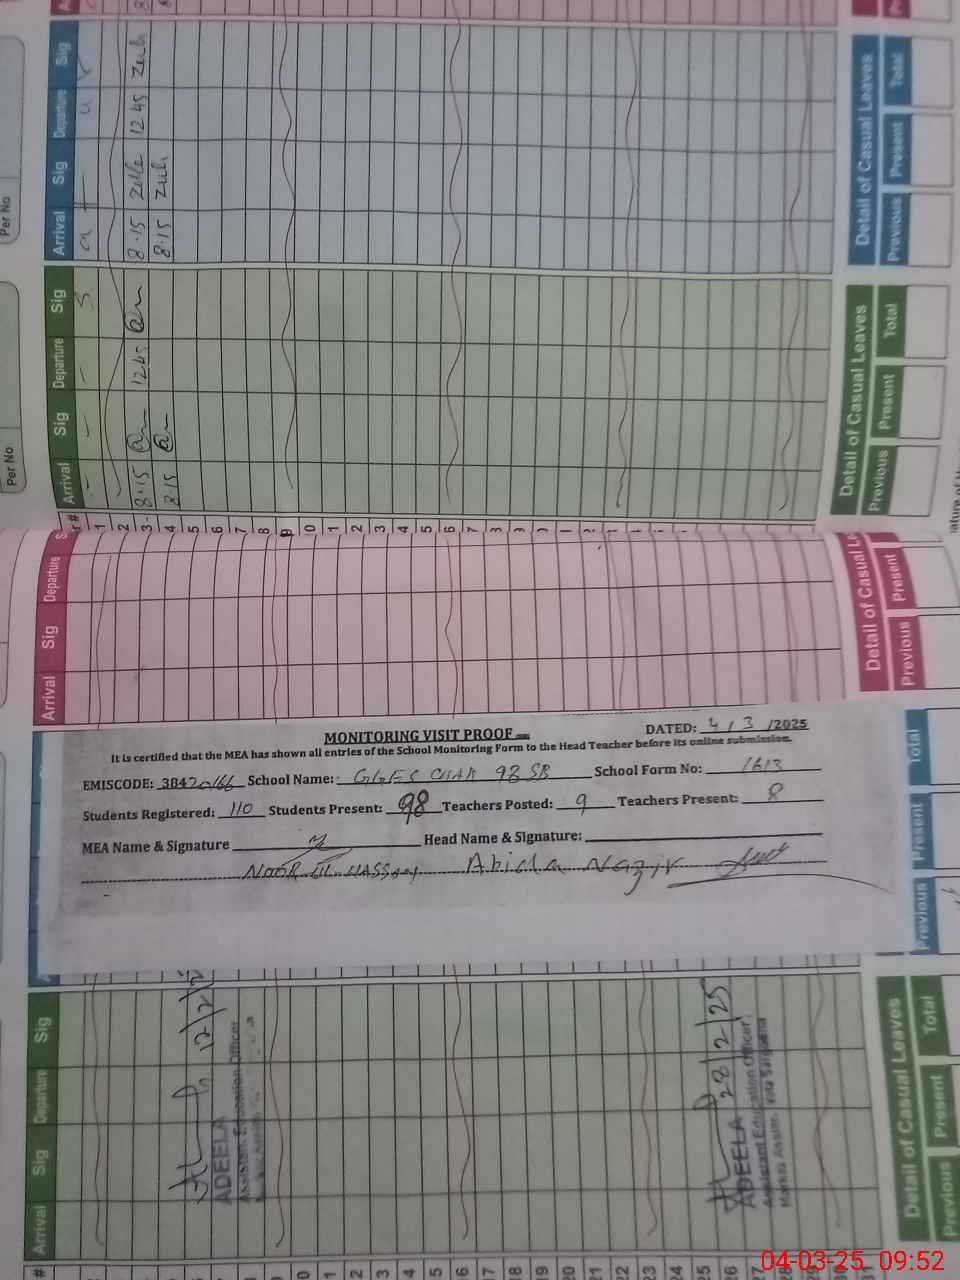 Per No
Per No
Arrival Sig Departure Sig
8.15 Zule 1245 Zuli
8.15 Zuli
Detail of Casual Leaves
Previous Present Total
Arrival Sig Departure Sig
8.15 1245
8.15
Detail of Casual Leaves
Previous Present Total
1
2
3
4
5
6
7
8
9
Arrival Sig Departure
Detail of Casual Le
Previous Present
MONITORING VISIT PROOF
DATED: 4 / 3 /2025
It is certified that the MEA has shown all entries of the School Monitoring Form to the Head Teacher before its online submission.
EMISCODE: 38420166 School Name: GGES CHAK 98 SB School Form No: 1613
Students Registered: 110 Students Present: 98 Teachers Posted: 9 Teachers Present: 8
MEA Name & Signature Head Name & Signature:
NOOR UL HASSAN Abida Nazir
Previous Present Total
Arrival Sig Departure Sig
12/2/2
ADEELA
Assistant Education Officer
28/2/25
ADEELA
Assistant Education Officer
Detail of Casual Leaves
Previous Present Total
#
16
17
18
19
20
21
22
23
24
25
26
27
04-03-25 09:52